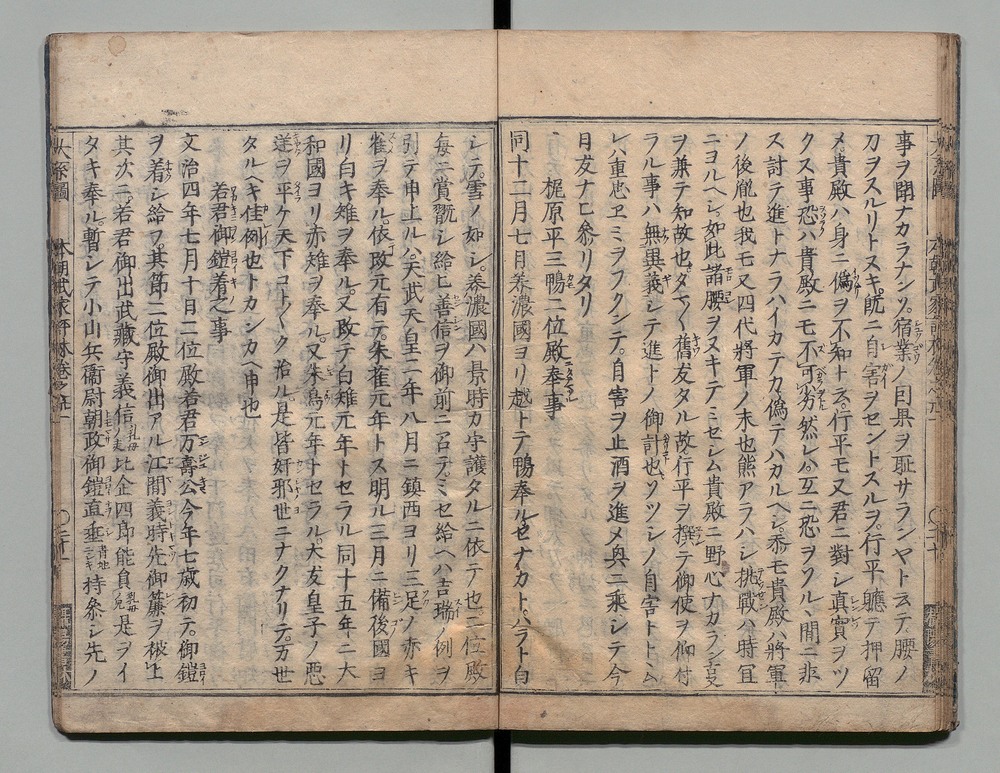 事ヲ聞ナカラナシソ。宿業ノ因果ヲ耻サランヤト云テ。腰ノ
刀ヲスルリトヌキ。既ニ自害ヲセントスルヲ。行平軈テ押留
メ。貴殿ハ身ニ偽ヲ不知ト云。行平モ又君ニ對シ真實ヲツ
クス事恐ハ貴殿ニモ不可劣然レハ。互ニ恐ヲフルヽ間ニ非
ス討テ進トナラハイカテカ偽テハカルヘシ。忝モ貴殿ハ將軍
ノ後胤也我モ又四代將軍ノ末也熊アラハシ挑戰ハ時宜
ニヨルヘシ。如此諸腰ヲヌキテミセシム貴殿ニ野心ナカラン
ヲ兼テ知故也。タマ〱舊友タル故行平ヲ撰テ御使ヲ仰付
ラル事ハ無異義シテ進トノ御計也。ソツシノ自害トトム
レハ重忠ヱミヲフクンテ。自害ヲ止酒ヲ進メ與ニ乘シテ今
日友ナヒ參リタリ
梶原平三鴨二位殿奉事
同十二月七日養濃國ヨリ越トテ鴨奉ルセナカト。ハラト白
シテ。雪ノ如シ。養濃國ハ景時カ守護タルニ依テ也。二位殿
毎ニ賞翫シ給ヒ善信ヲ御前ニ召テ。ミセ給ヘハ吉瑞ノ例ヲ
引テ申上ル。天武天皇二年八月ニ鎮西ヨリ三足ノ赤キ
雀ヲ奉ル。依改元有テ。朱雀元年トス明ル三月ニ備後國ヨ
リ白キ雉ヲ奉ル。又改テ白雉元年トセラル同十五年ニ大
和國ヨリ赤雉ヲ奉ル。又朱鳥元年トセラル。大友皇子ノ悪
逆ヲ平ケ天下コト〱ク治ル。是皆奸邪世ニナクナリテ。万世
タルヘキ佳例也トカンカヘ申也
若君御鎧着之事
文治四年七月十日二位殿若君万壽公今年七歳初テ。御鎧
ヲ着シ給フ。其節二位殿御出アル江間義時先御簾ヲ捲上
其次ニ若君御出武藏守義信乳母夫比企四郎能員乳母兄是ヲイ
タキ奉ル。暫シテ小山兵衞尉朝政御鎧直垂青地ニシキ持參シ先ノ